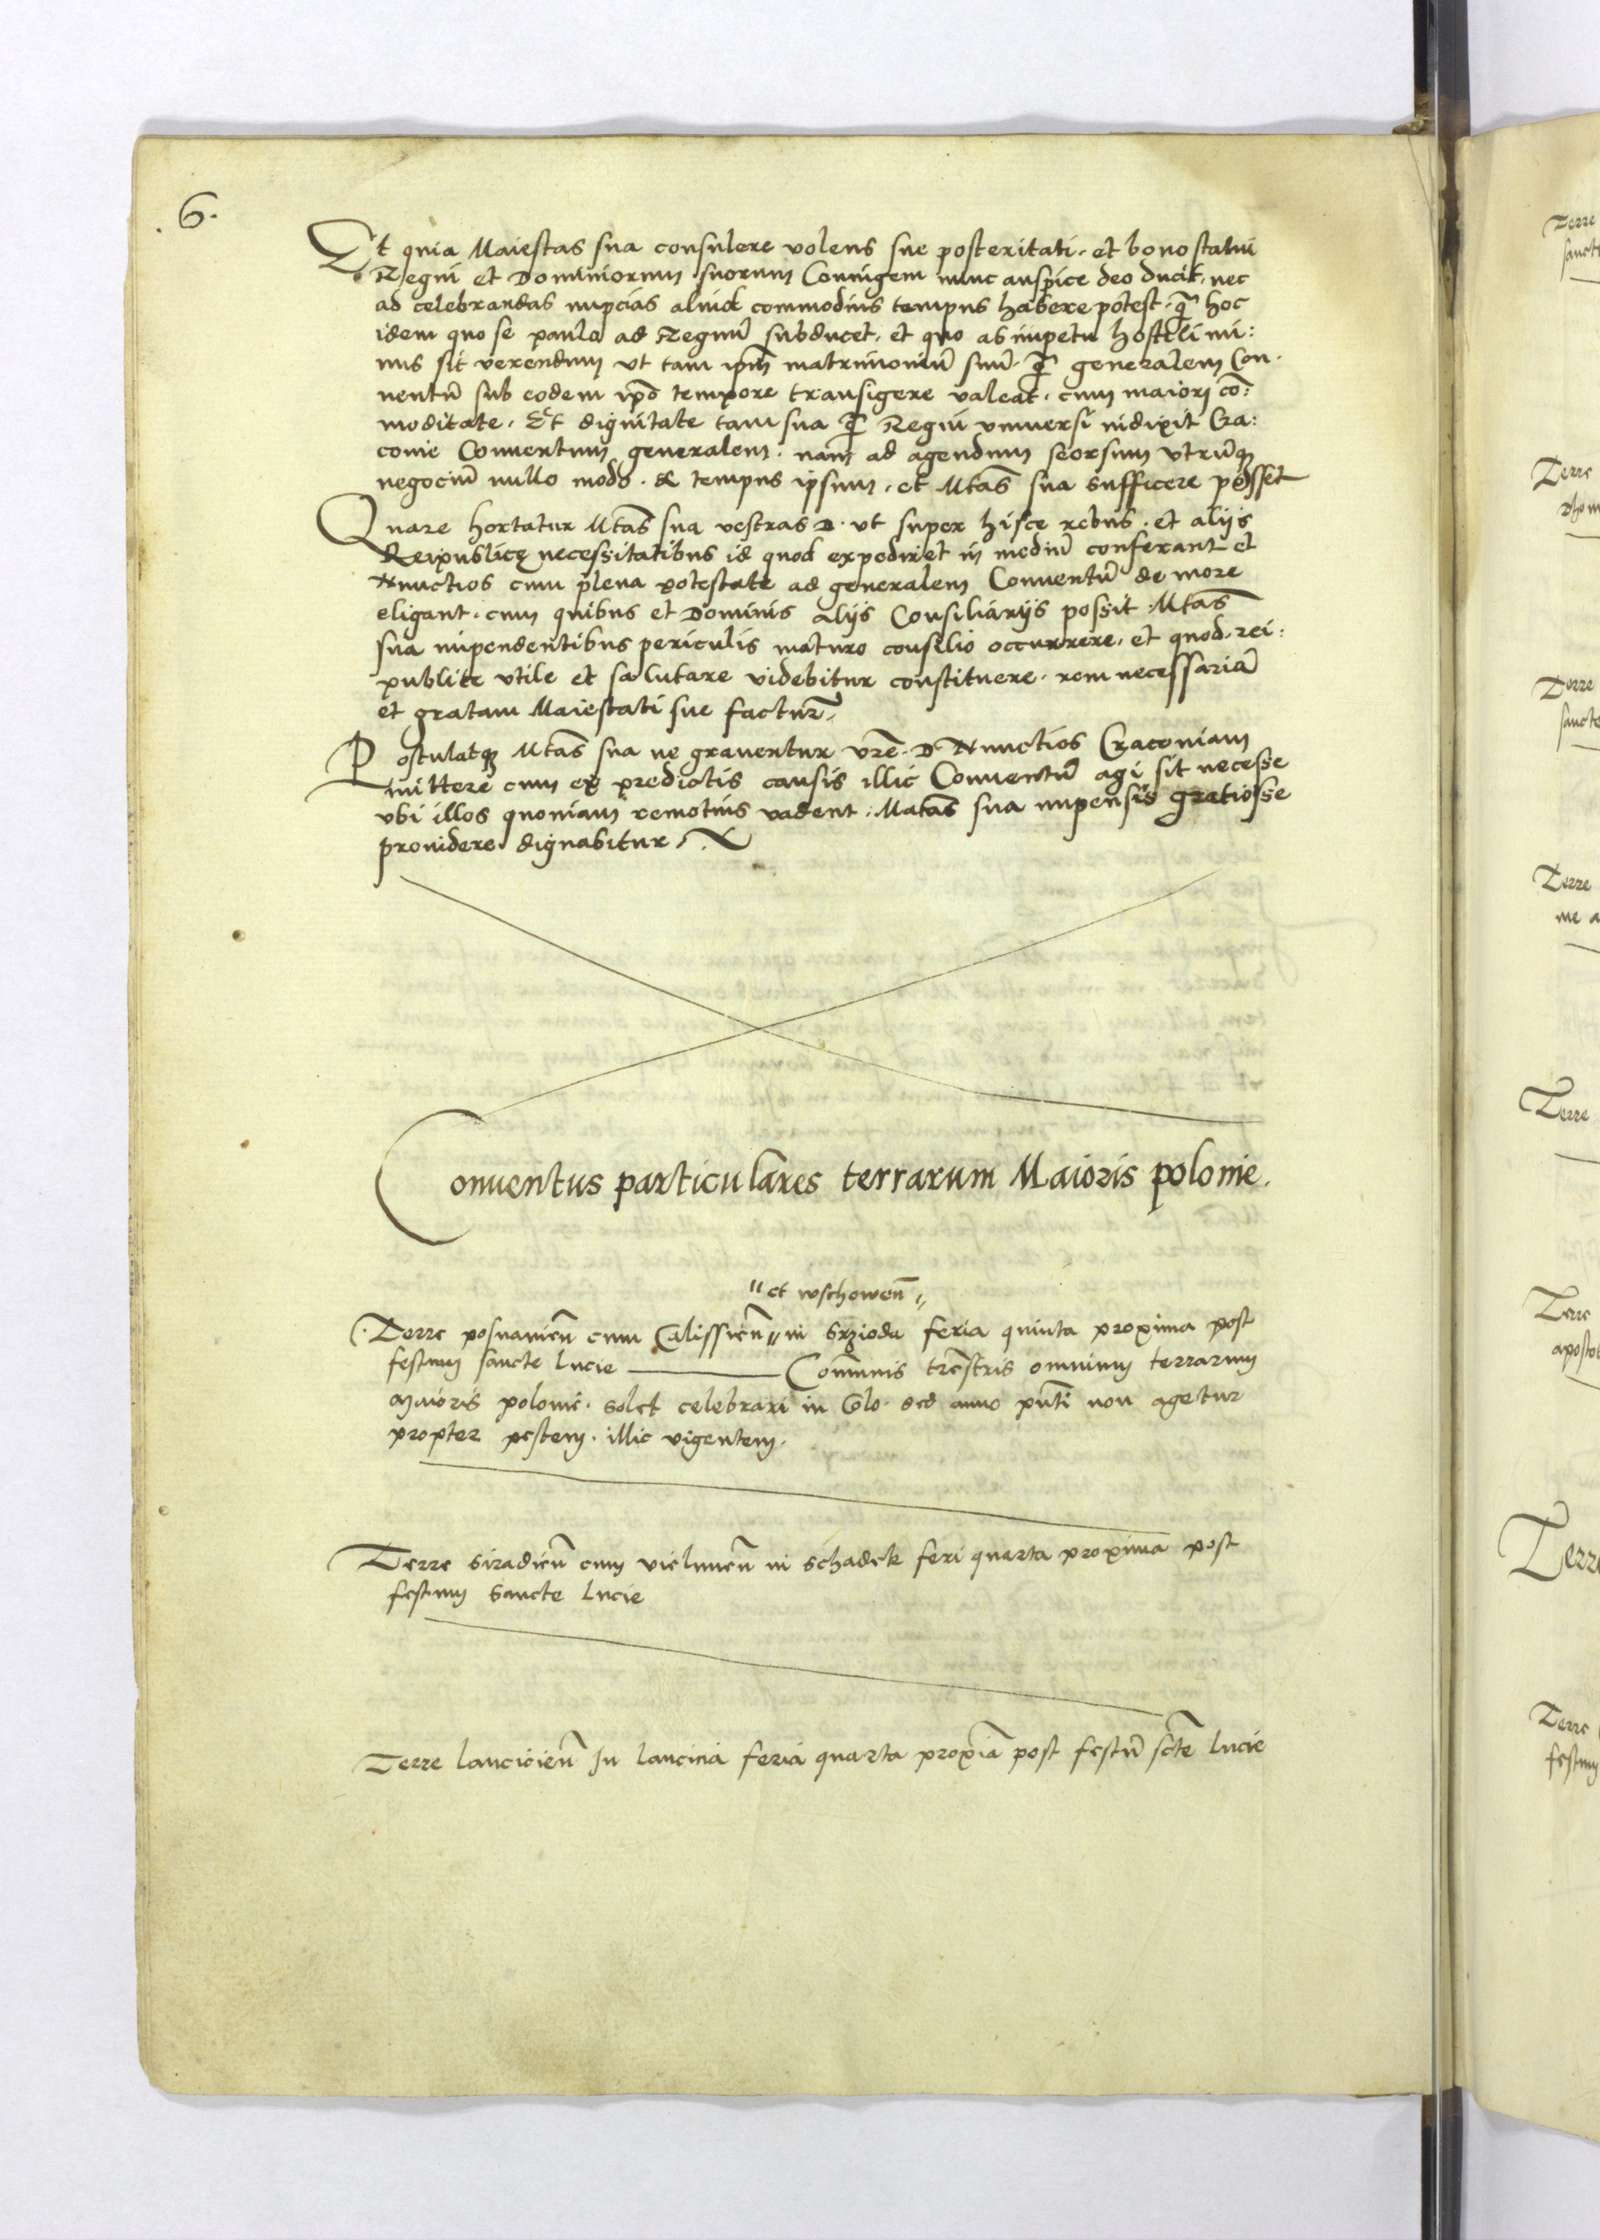 6.
Et quia Maiestas sua consulere volens sue posteritati. et bono statui
Regni et Dominiorum suorum Coniugem nunc auspice deo ducit. nec
ad celebrandas nupcias aliud commodius tempus habere potest. q̄ hoc
idem quo se paulo ad Regnū subducet. et quo ab impetu hostili mi:
nus sit verendum ut tam ipm̄ matrimoniū suū. q̄ generalem Con-
ventū sub eodem ipō tempore transigere valeat. cum maiori cō:
moditate. Et dignitate tam sua q̄ Regni universi indixit Cra:
covie Conventum generalem. nam ad agendum seorsum utrūqȝ
negociū nullo modo. & tempus ipsum. et Mtas̄ sua sufficere posset
Quare hortatur Mtas̄ sua vestras D. ut super hisce rebus. et aliis
Reipublicę necessitatibus id quod expediret in mediū conferant et
Nunctios cum plena potestate ad generalem Conventū de more
eligant. cum quibus et Dominis aliis Consiliariis possit Mtas̄
sua impendentibus periculis maturo consilio occurrere. et quod rei:
publice utile et salutare videbitur constituere. rem necessariā
et gratam Maiestati sue factur̄.
Postulatqȝ Mtas̄ sua ne graventur vrē. D. Nunctios Cracoviam
mittere cum ex predictis causis illic Conventū agi sit necesse
ubi illos quoniam remotius vadent. Matas̄ sua impensis gratiosse
providere dignabitur.
Conventus particulares terrarum Maioris polonie.
" et wschowen̄ "
Terre posnanien̄ cum Calissien̄ " in Srzioda feria quinta proxima post
festum sancte Lucie ——— Com̄unis tr̄estris omnium terrarum
Maioris polonie. solet celebrari in Colo. sed anno pn̄ti non agetur
propter pestem. illic vigentem.
Terre Siradien̄ cum vielunen̄ in Schadek feri quarta proxima post
festum Sancte Lucie
Terre lancicien̄ In lancicia feria quarta proxīa post festū sctē Lucie
Terre
sancte
Terre
Thom
Terre
sancte
Terre
me a
Terre
Terre
apostol
Terre
Terre
festum